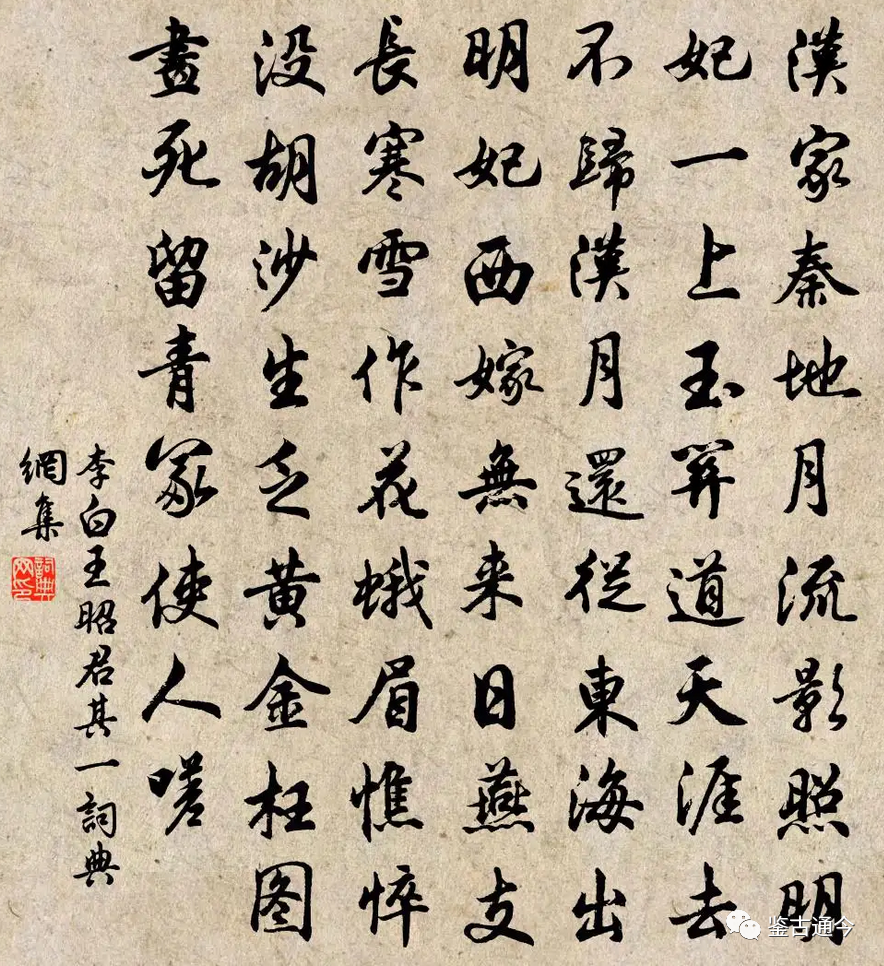 漢家秦地月流影照明
妃一上玉關道天涯去
不歸漢月還從東海出
明妃西嫁無来日燕支
長寒雪作花蛾眉憔悴
没胡沙生乏黄金枉图
畫死留青冢使人嗟
李白王昭君其一詞典
網集
詞典网印
鉴古通今